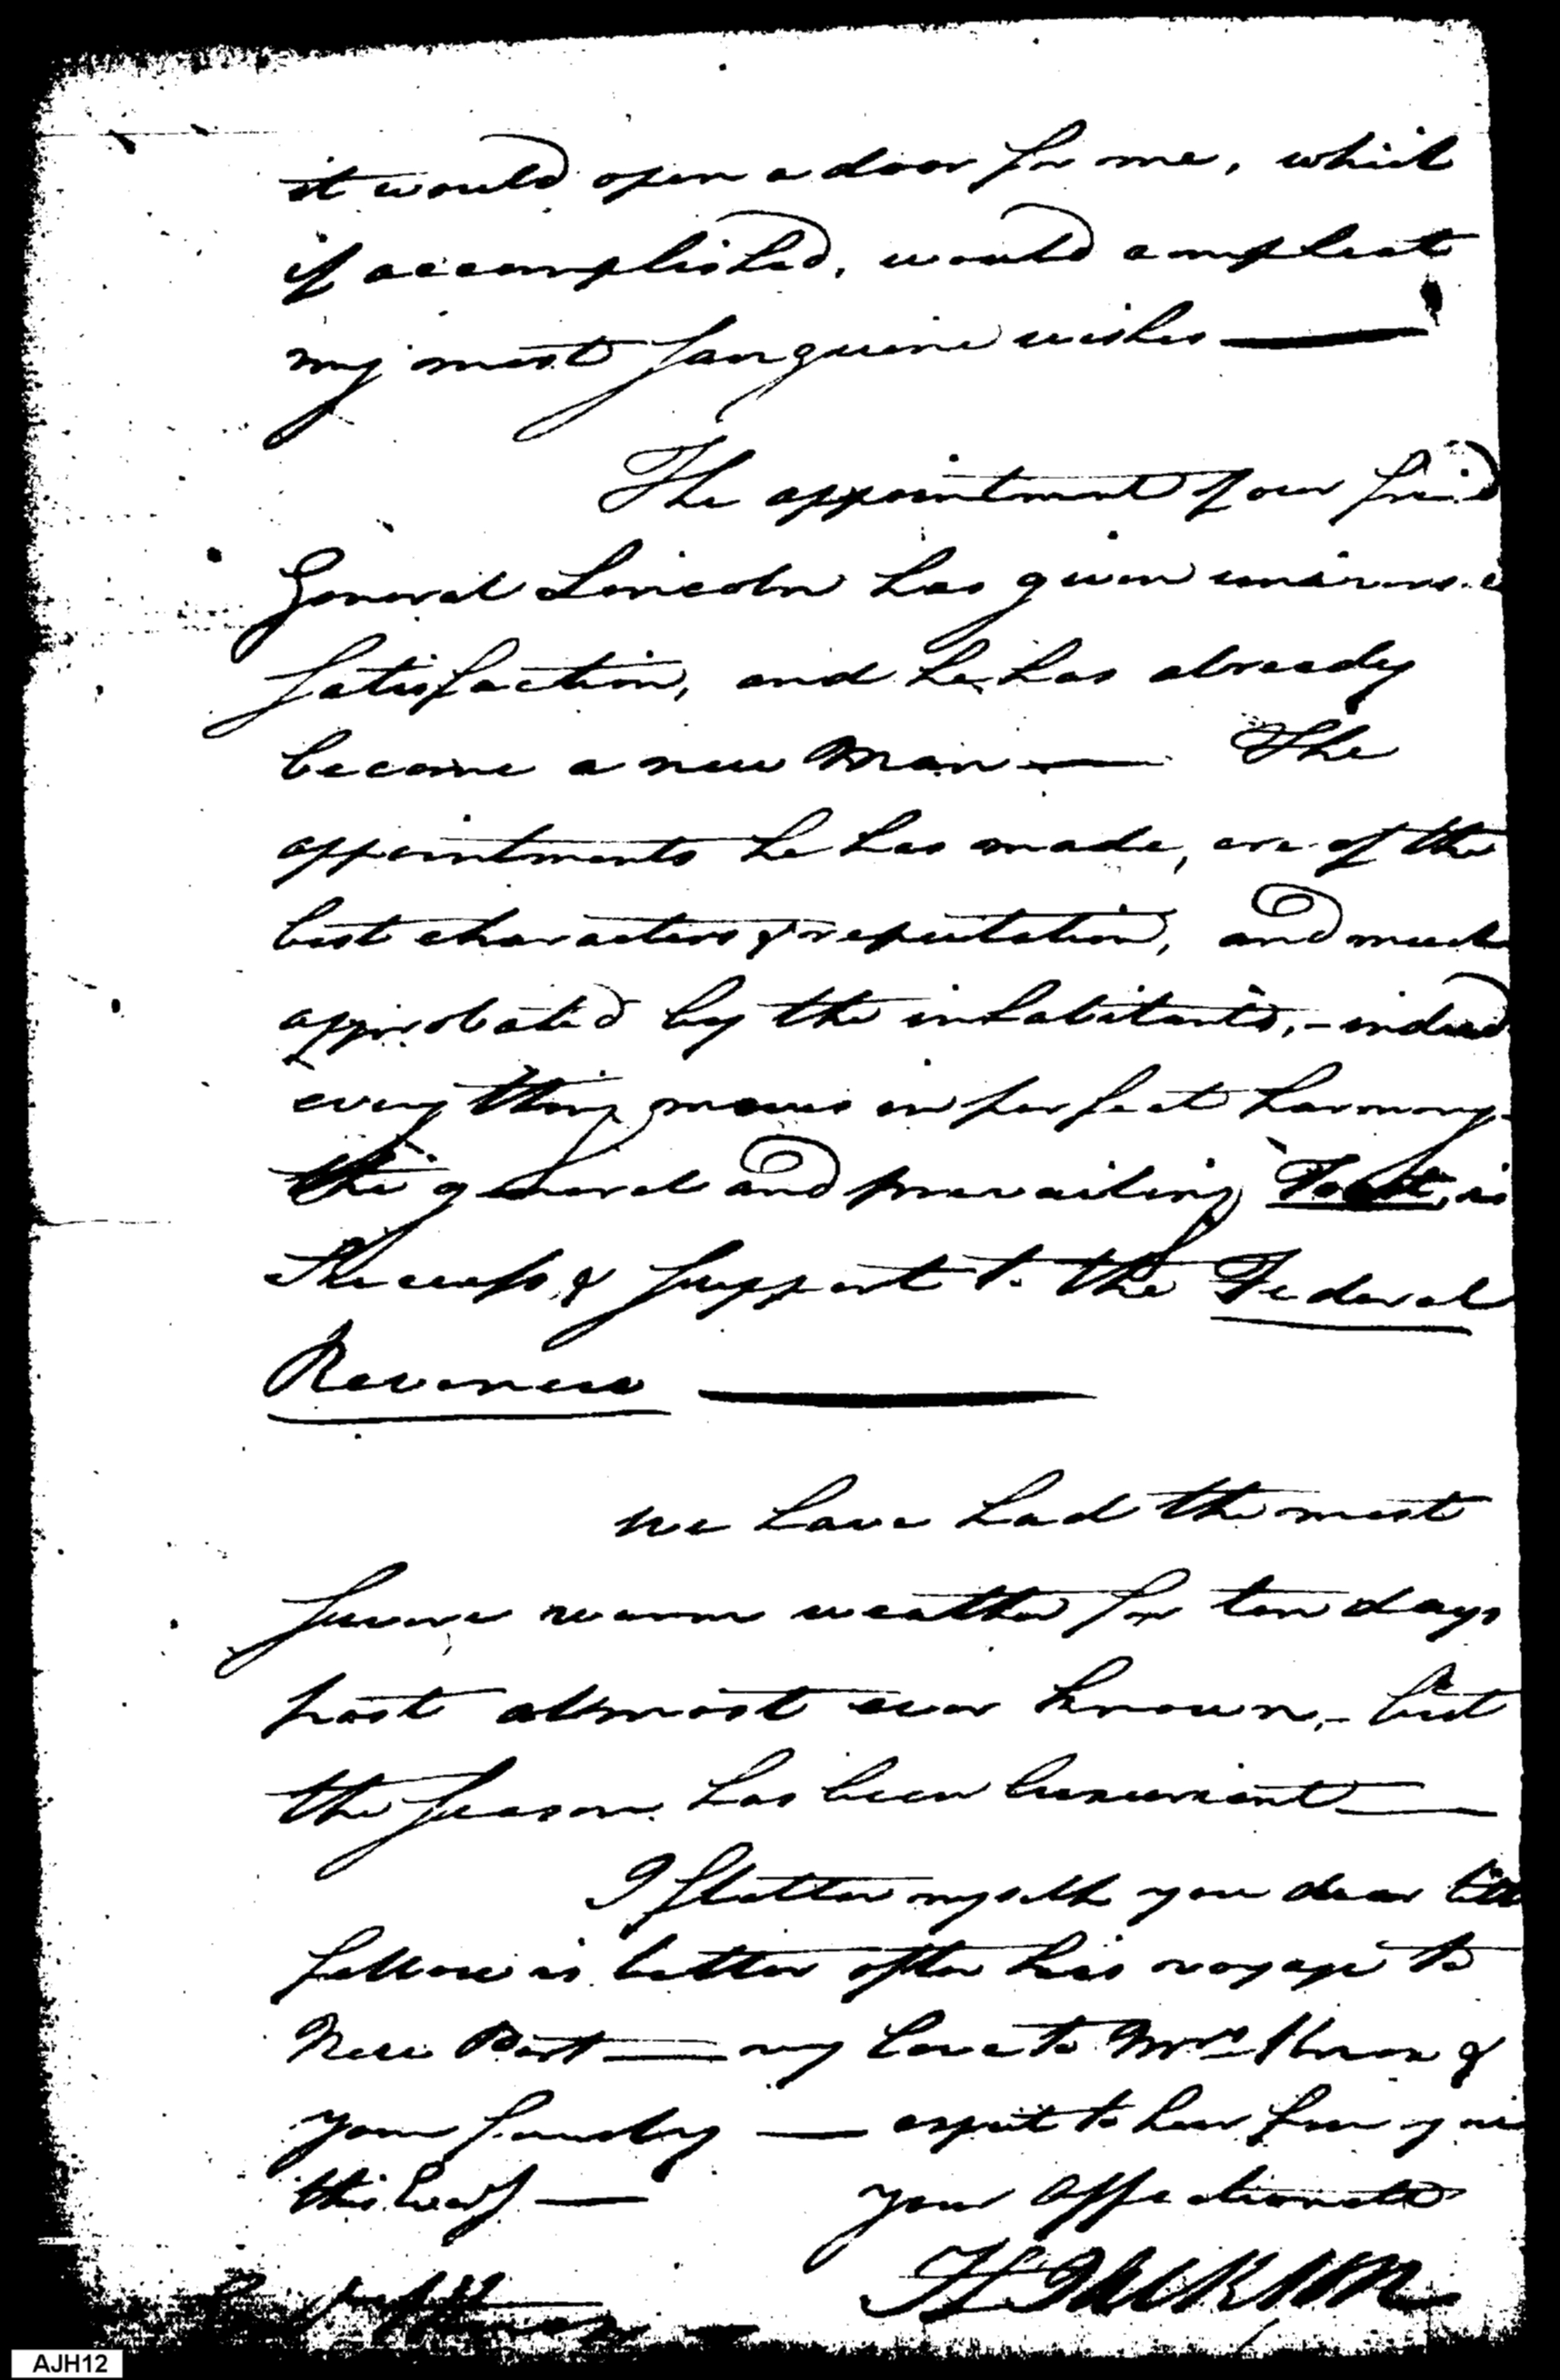 it would open a door for me, which
if accomplished, would compleat
my most sanguine wishes —
The appointment of our friend
General Lincoln has given universal
satisfaction, and he has already
become a new Man — The
appointments he has made, are of the
best characters & reputation, and much
approbated by the inhabitants, - indeed
every thing moves in perfect harmony -
the general and prevailing Toast, is
Success & support to the Federal
Revenue —
We have had the most
severe warm weather for ten days
past almost ever known, - but
the season has been luxuriant —
I flatter myself you dear little
fellow is better after his voyage to
New Port — my love to Mrs Knox &
your family — expect to hear from you
this Eveg —
your Affectionate
H Jackson
AJH12